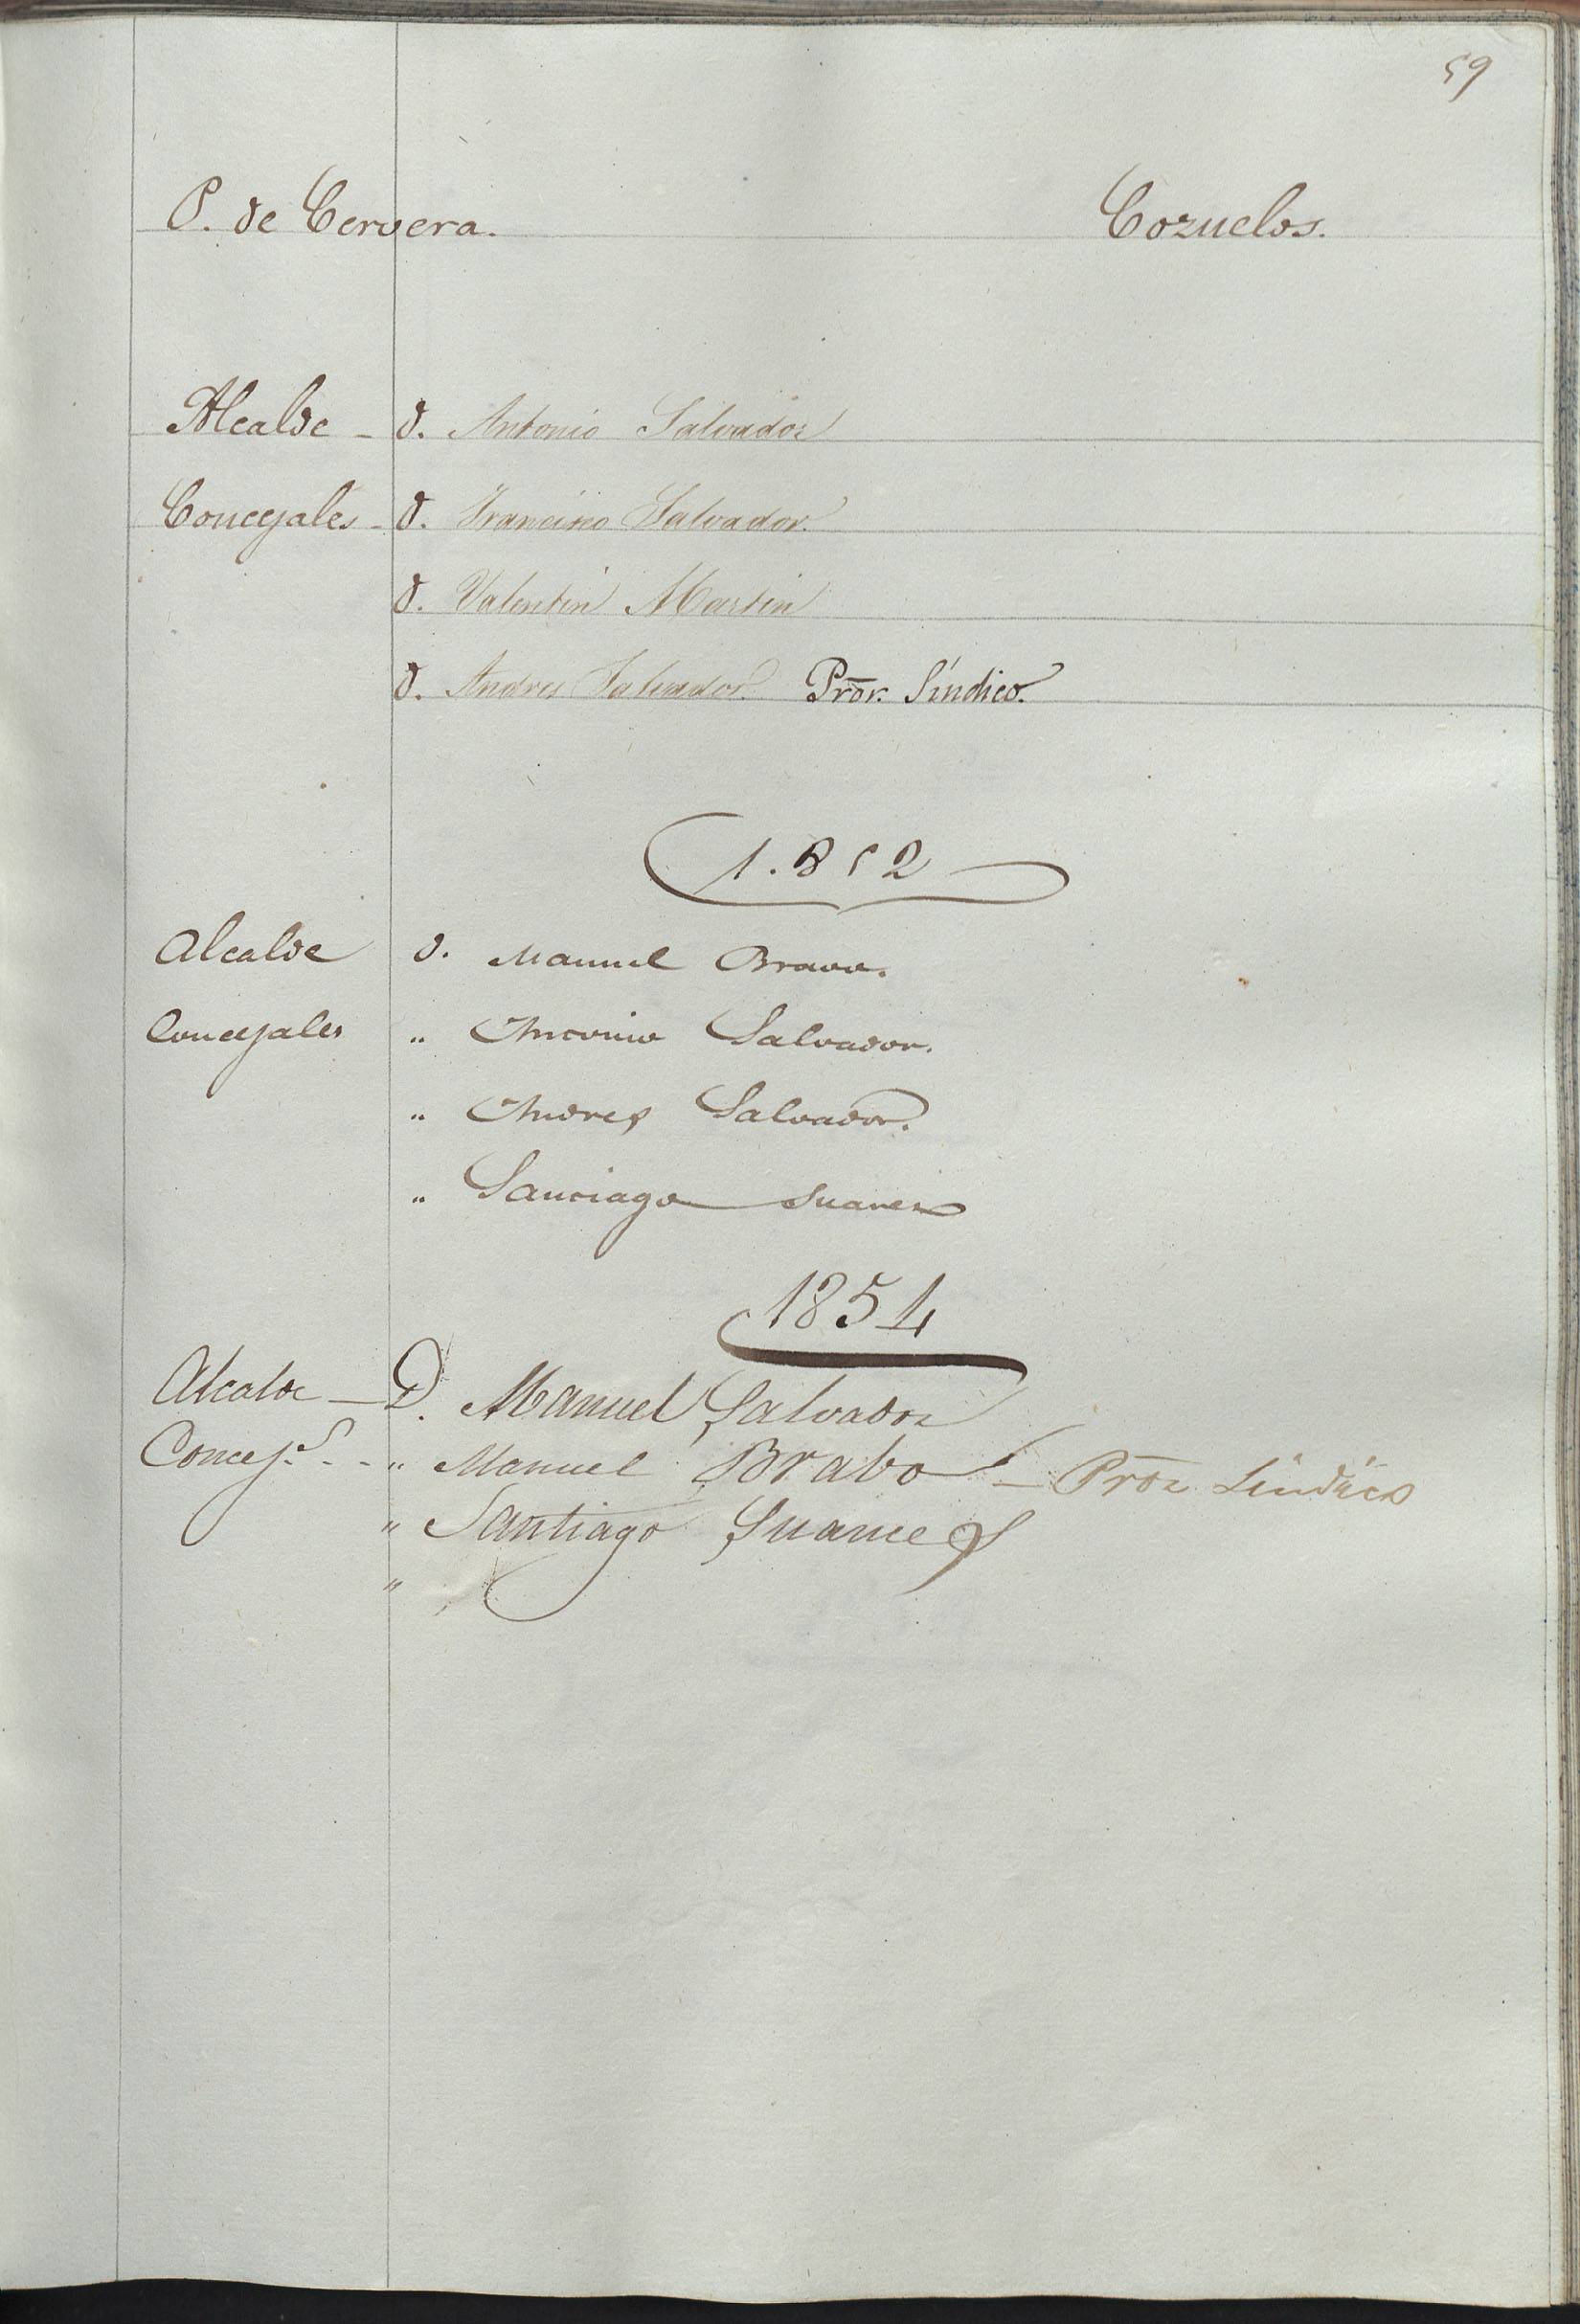 59
P. de Cervera. Cozuelos.
Alcalde - D. Antonio Salvador
Concejales - D. Francisco Salvador.
D. Valentin Martin
D. Andres Salvador. Pror. Síndico.
1.852
Alcalde D. Manuel Bravo.
Concejales " Antonio Salvador.
" Andres Salvador.
" Santiago Suarez
1854
Alcalde - D. Manuel Salvador
Concej.s - - " Manuel Brabo - Pror Síndico
" Santiago Suarez
"